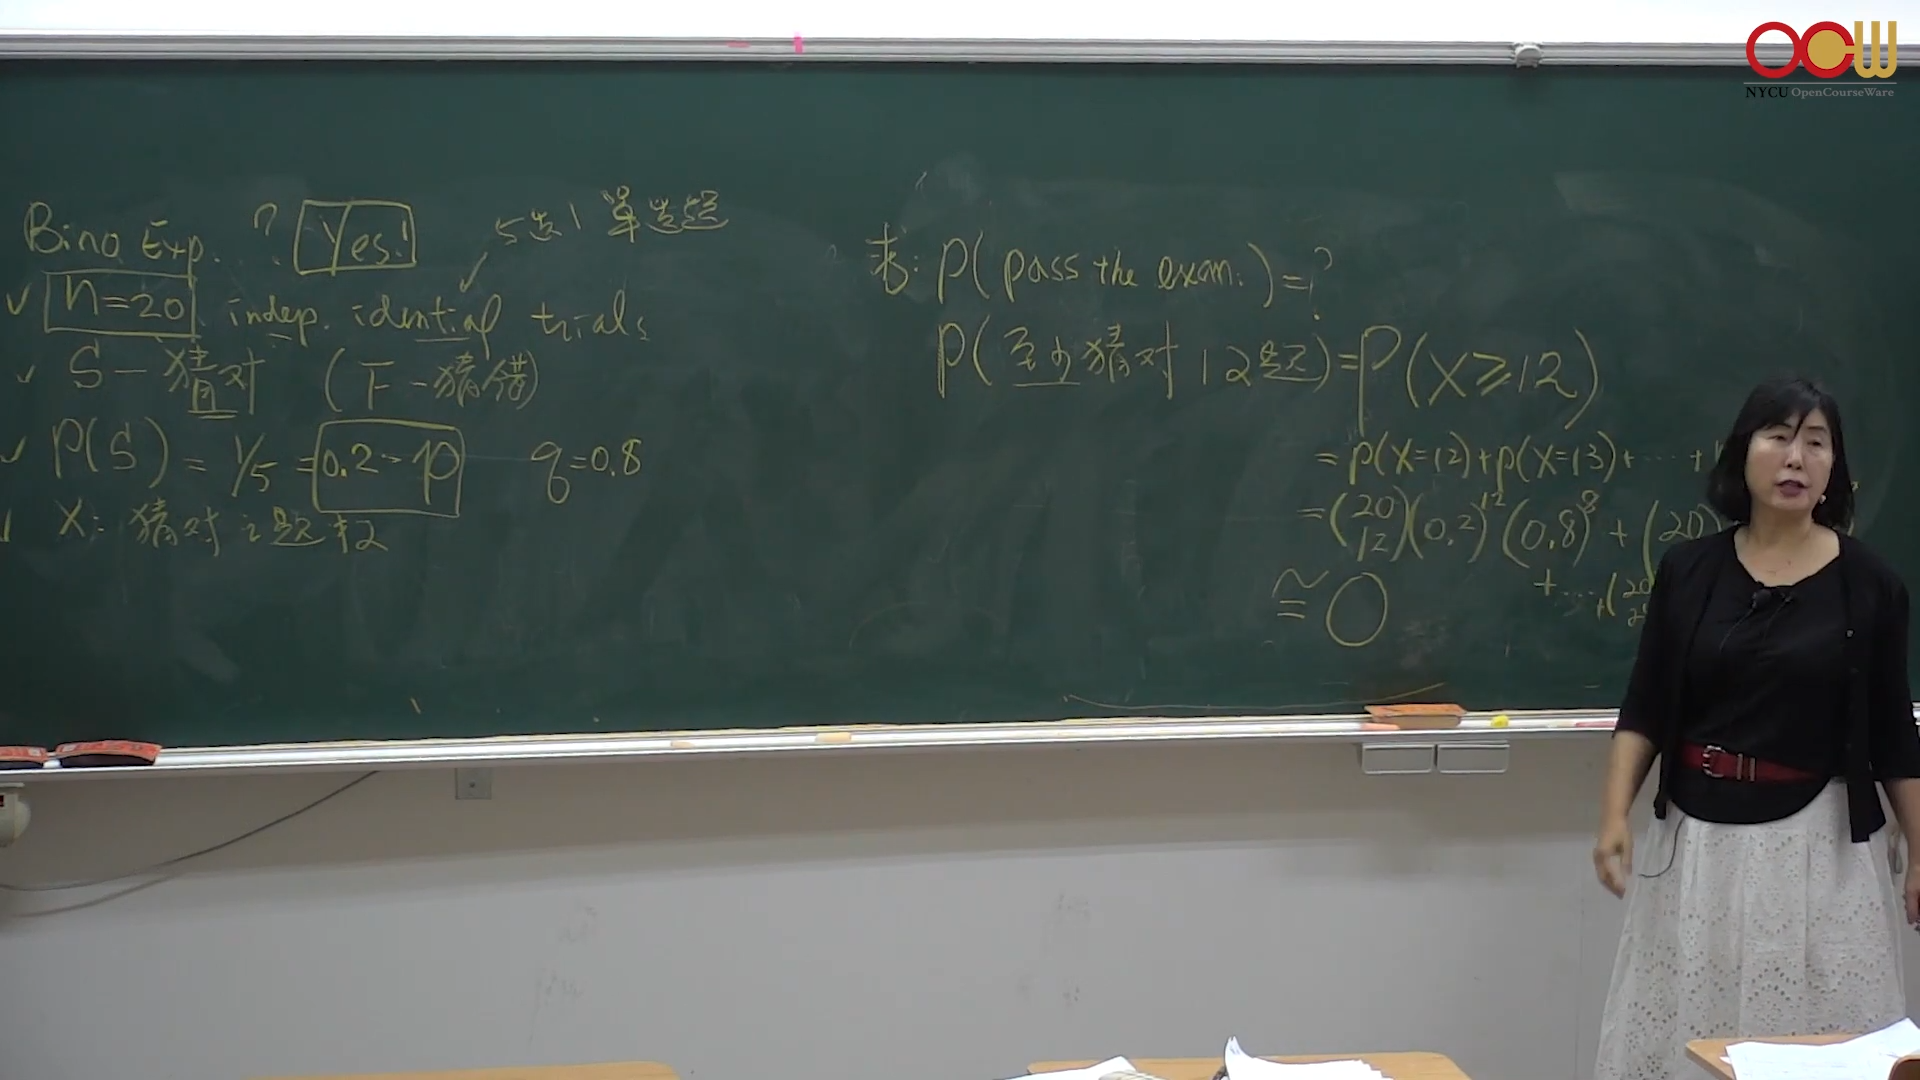 OCW
NYCU OpenCourseWare
Bino Exp. ? Yes!
5选1 單选題
✓ n=20 indep. identical trials
✓ S-猜对 (F-猜错)
✓ P(S) = 1/5 = 0.2 = p q=0.8
X: 猜对之题数
求: P(pass the exam.)=?
P(至少猜对12题)=P(X≥12)
= P(X=12)+P(X=13)+⋯+
=(20 12)(0.2)^12 (0.8)^8 + (20
+⋯+(20
≅ 0